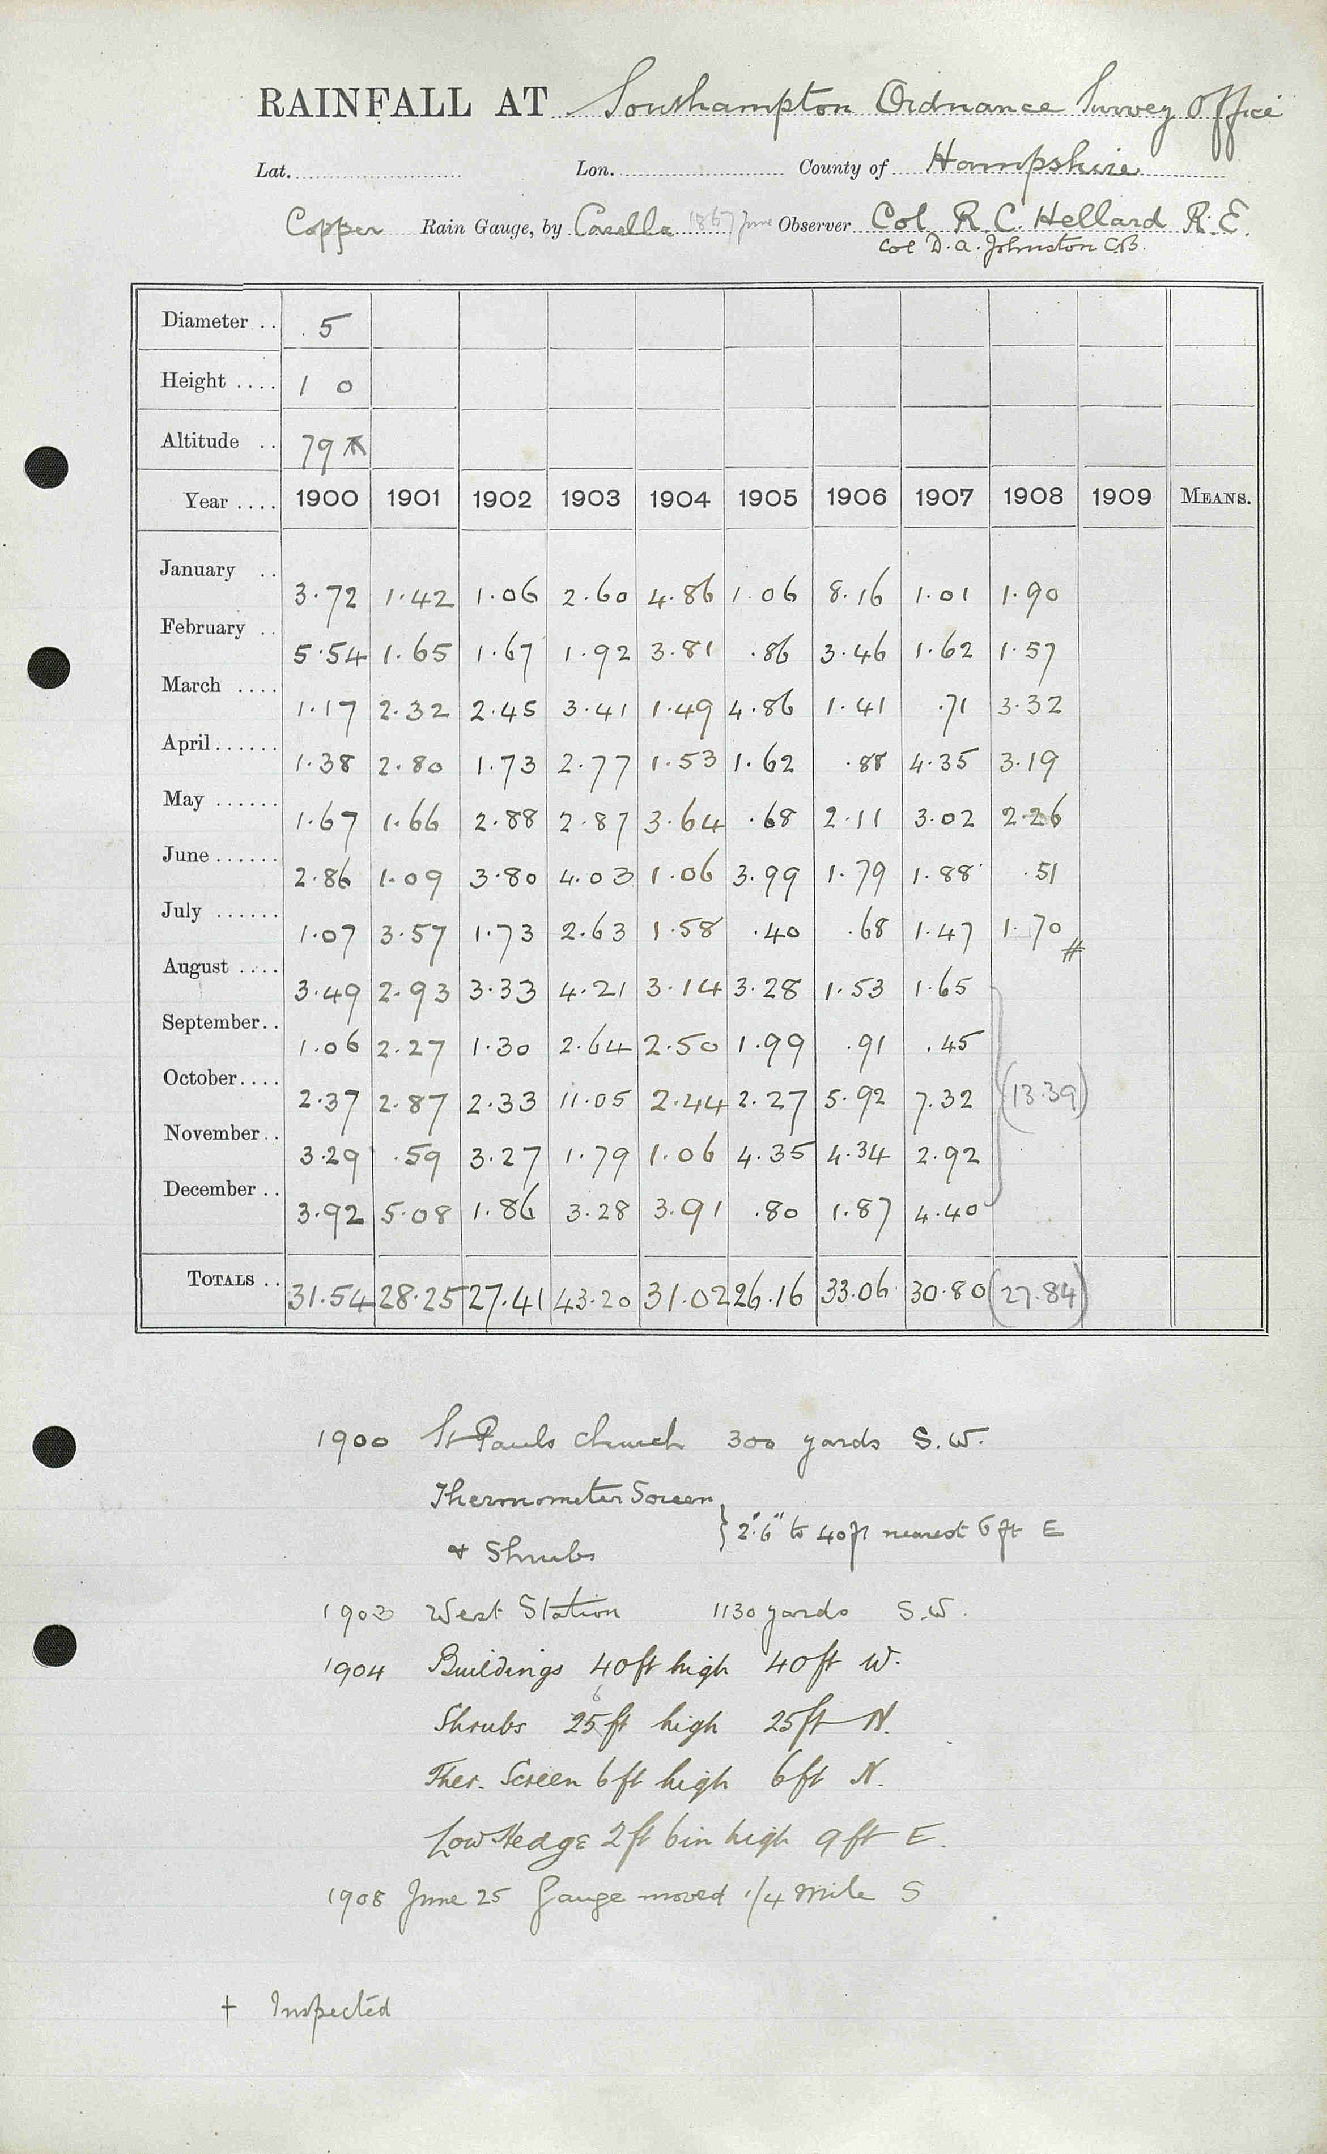 RAINFALL AT Southampton Ordnance Survey Office
Lat. Lon. County of Hampshire
Copper Rain Gauge, by Casella 1867 June Observer Col R. C. Hellard R. E.
Col D. A. Johnston C.B.
Diameter .. 5
Height .... 1 0
Altitude .. 79
Year .... 1900 1901 1902 1903 1904 1905 1906 1907 1908 1909 MEANS.
January .. 3.72 1.42 1.06 2.60 4.86 1.06 8.16 1.01 1.90
February .. 5.54 1.65 1.67 1.92 3.81 .86 3.46 1.62 1.57
March .... 1.17 2.32 2.45 3.41 1.49 4.86 1.41 .71 3.32
April...... 1.38 2.80 1.73 2.77 1.53 1.62 .88 4.35 3.19
May ...... 1.67 1.66 2.88 2.87 3.64 .68 2.11 3.02 2.26
June ...... 2.86 1.09 3.80 4.03 1.06 3.99 1.79 1.88 .51
July ...... 1.07 3.57 1.73 2.63 1.58 .40 .68 1.47 1.70 #
August .... 3.49 2.93 3.33 4.21 3.14 3.28 1.53 1.65
September.. 1.06 2.27 1.30 2.64 2.50 1.99 .91 .45
October.... 2.37 2.87 2.33 11.05 2.44 2.27 5.92 7.32 (13.39)
November.. 3.29 .59 3.27 1.79 1.06 4.35 4.34 2.92
December .. 3.92 5.08 1.86 3.28 3.91 .80 1.87 4.40
TOTALS .. 31.54 28.25 27.41 43.20 31.02 26.16 33.06 30.80 (27.84)
1900 St Pauls Church 300 yards S.W.
Thermometer Screen
} 2' 6" to 40ft nearest 6 ft E
& Shrubs
1903 West Station 1130 yards S.W.
1904 Buildings 40ft high 40ft W.
Shrubs 25ft high 25ft N.
Ther. Screen 6ft high 6ft N.
Low Hedge 2ft 6in high 9ft E.
1908 June 25 Gauge moved 1/4 mile S
† Inspected